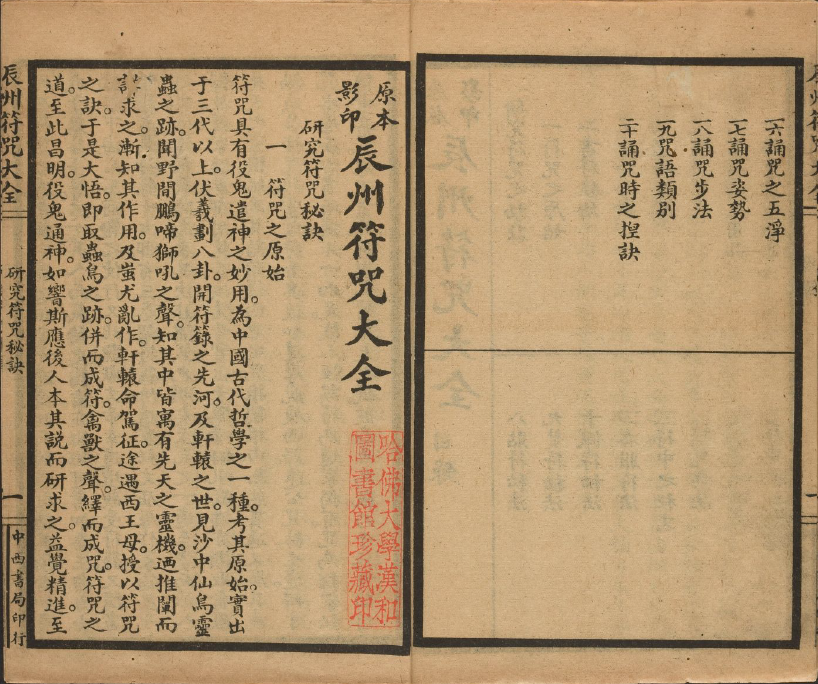 一六誦咒之五淨
一七誦咒姿勢
一八誦咒步法
一九咒語類別
二十誦咒時之揑訣
原本影印
辰州符咒大全
研究符咒秘訣
一 符咒之原始
符咒具有役鬼遣神之妙用。為中國古代哲學之一種。考其原始。實出
于三代以上。伏羲劃八卦。開符籙之先河。及軒轅之世。見沙中仙鳥靈
蟲之跡。聞野間鵬啼獅吼之聲。知其中皆寓有先天之靈機。迺推闡而
討求之。漸知其作用。及蚩尤亂作。軒轅命駕征。途遇西王母。授以符咒
之訣。于是大悟。即取蟲鳥之跡。併而成符。禽獸之聲。繹而成咒。符咒之
道。至此昌明。役鬼通神。如響斯應。後人本其說而研求之。益覺精進。至
哈佛大學漢和
圖書館珍藏印
辰州符咒大全
研究符咒秘訣
一
中西書局印行